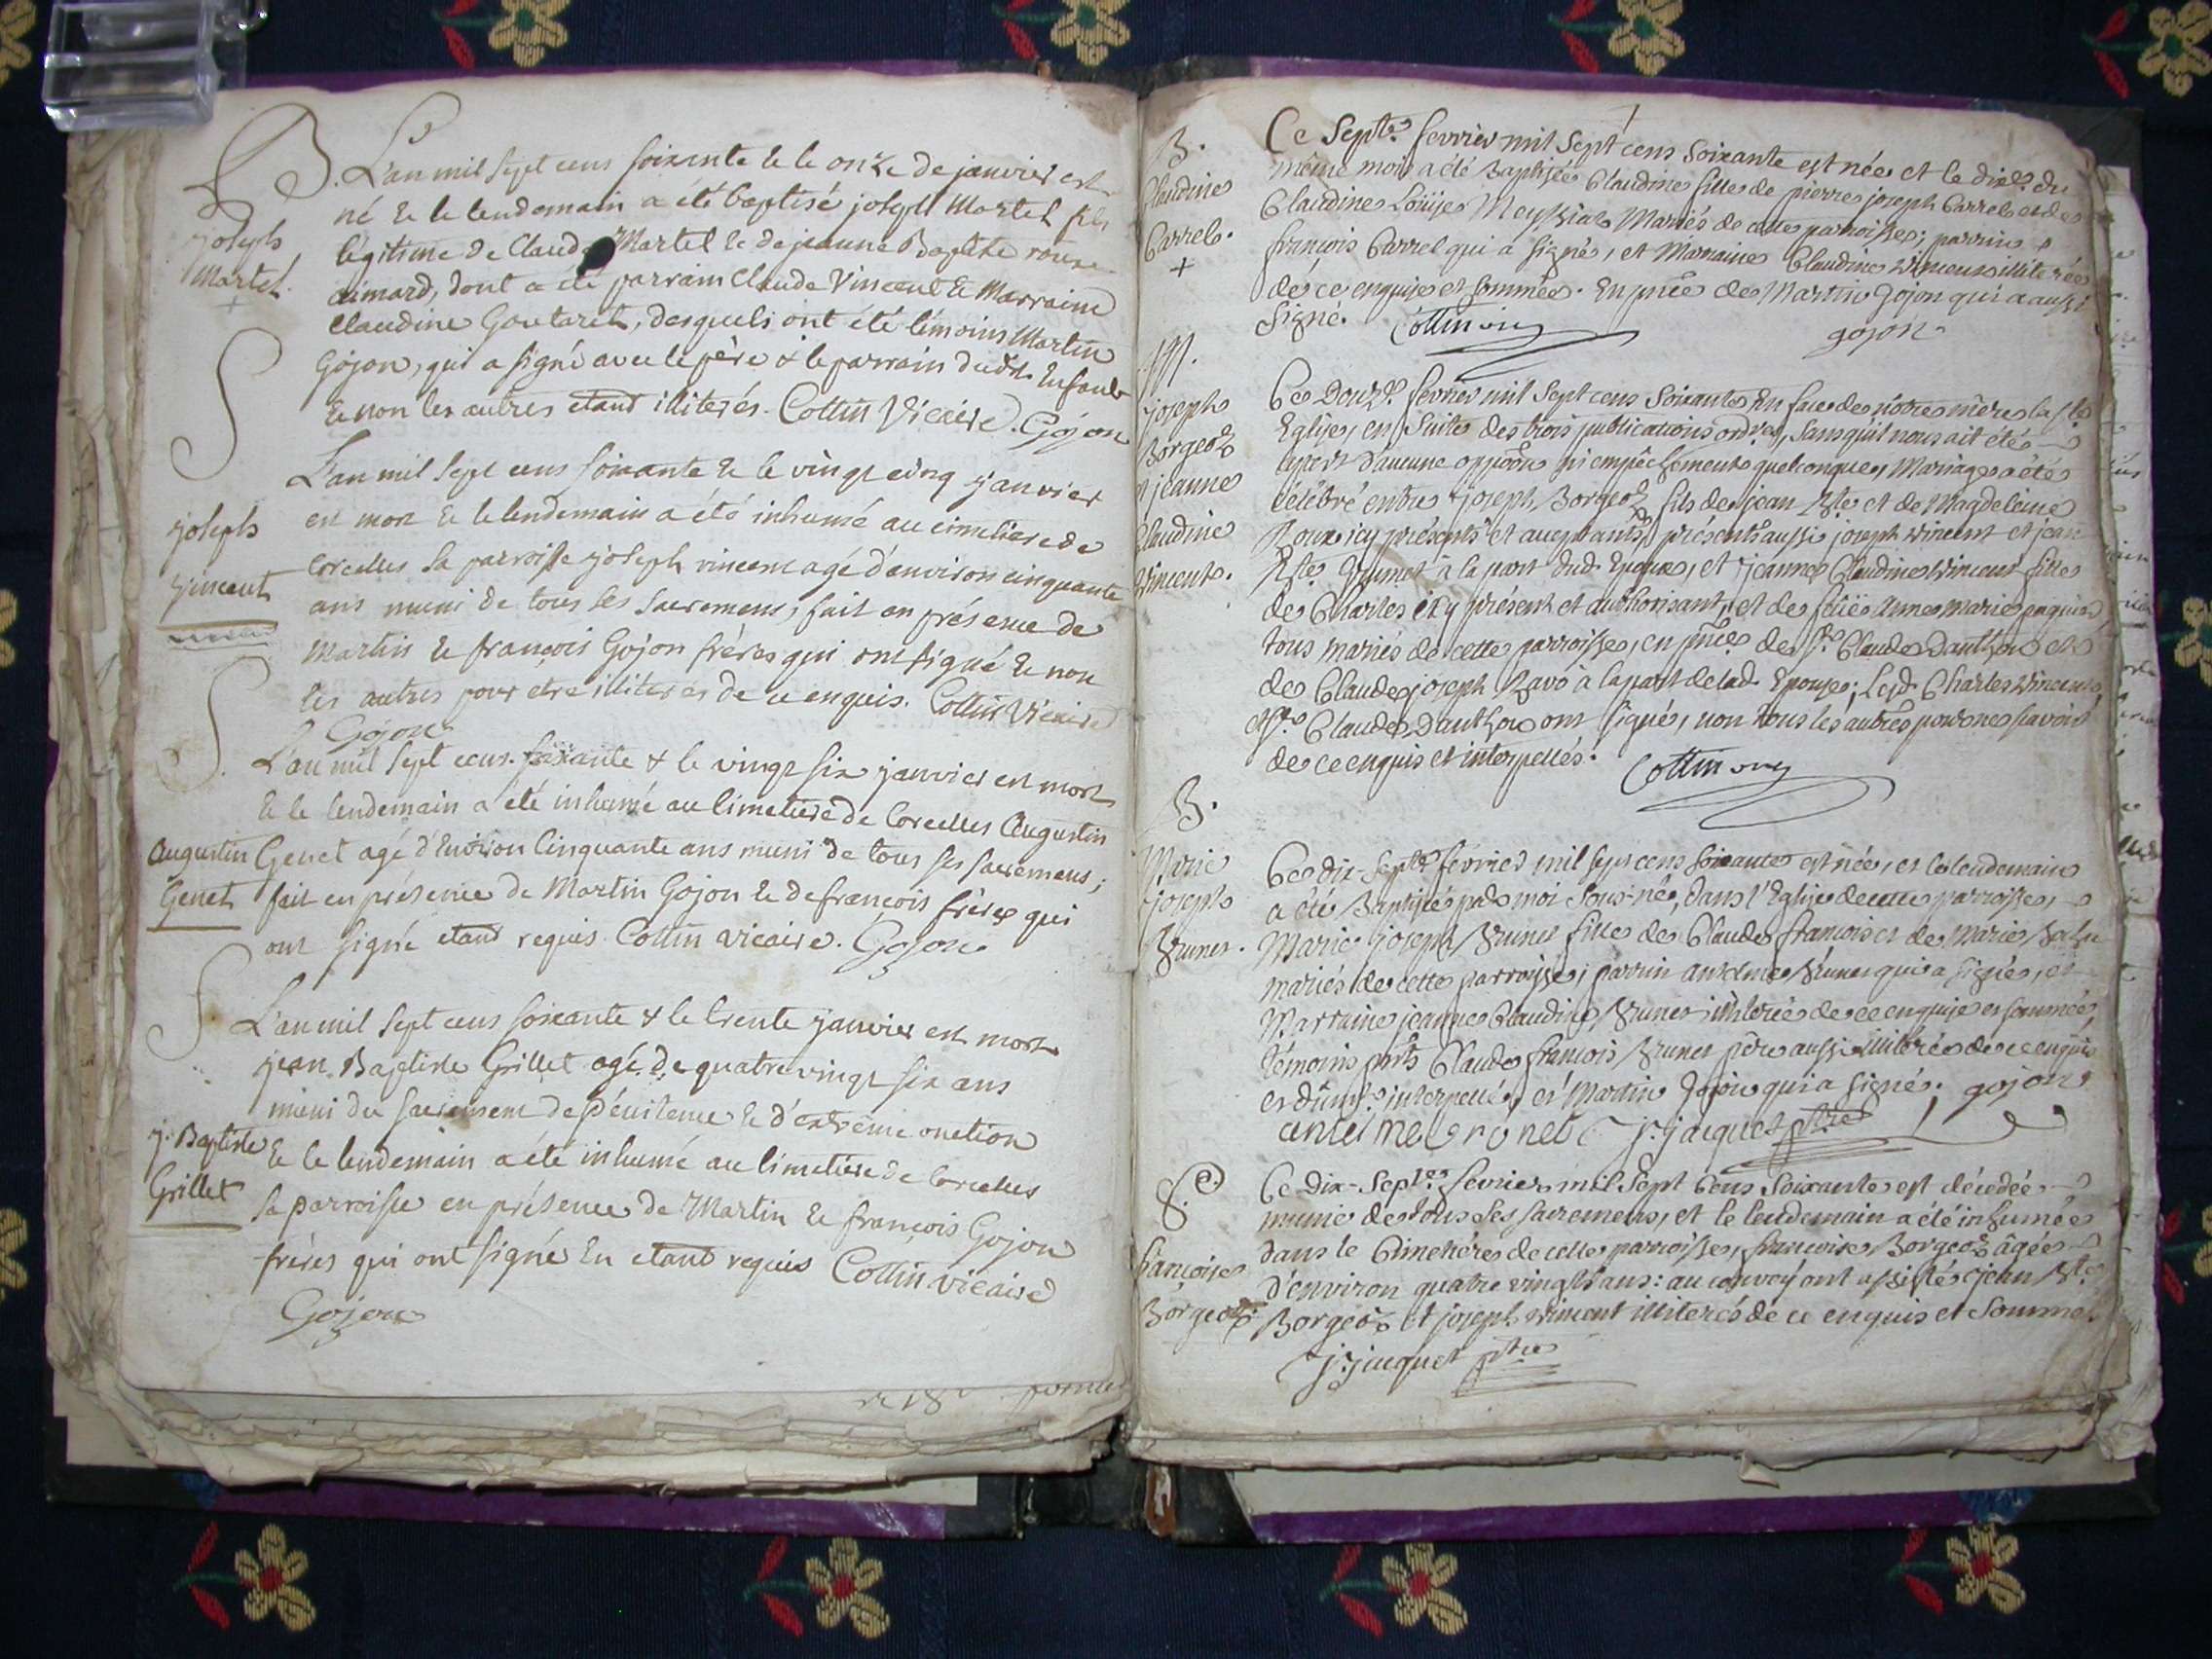 B. L'an mil sept cens soixante & le onze de janvier est
né & le lendemain a été baptisé joseph Martel fils
joseph
Martel
légitime de Claude Martel & de jeanne Baptiste
aimard, dont a été parrain Claude Vincent & Marraine
Claudine Goutaret, desquels ont été témoins Martin
Gojon, qui a signé avec le père & le parrain dudit Enfant
& non les autres etant illiterés. Collin Vicaire. Gojon
S
L'an mil sept cens soixante & le vingt cinq janvier
joseph
vincent
est mort & le lendemain a été inhumé au cimetiere de
Corcelles sa paroisse joseph vincent agé d'environ cinquante
ans muni de tous ses sacremens, fait en présence de
Martin & françois Gojon fréres qui ont signé & non
les autres pour etre illiterés de ce enquis. Collin Vicaire
Gojon
S. L'an mil sept cens soixante & le vingt six janvier est mort
& le lendemain a été inhumé au Cimetiere de Corcelles Augustin
Augustin
Genet
Genet agé d'Environ Cinquante ans muni de tous ses sacremens;
fait en présence de Martin Gojon & de françois fréres qui
ont signé etant requis. Collin vicaire. Gojon
S
L'an mil sept cens soixante & le trente janvier est mort
jean Baptiste Grillet agé de quatre vingt six ans
muni du sacrement de pénitence & d'extrême onction
j. Baptiste
Grillet
& le lendemain a été inhumé au Cimetiere de Corcelles
sa parroisse en présence de Martin & françois Gojon
fréres qui ont signé En etant requis Collin vicaire
Gojon
B.
Claudine
Carrel.
+
Ce Septe. fevrier mil Sept cens Soixante est née et le dixe. du
même mois a été Baptisée Claudine fille de pierre joseph Carrel et de
Claudine Loüise Mariés de cette parroisse; parrain
françois Carrel qui a signé, et Marraine Claudine Vincent illiterée
de ce enquise et sommée. En pnce de Martin Gojon qui a aussi
Signé. Collin Gojon
M.
joseph
Borgeoz
jeanne
Claudine
Vincent.
Ce Douze. fevrier mil Sept cens Soixante, En face de nôtre mère la ste
Eglise, en Suite des trois publications ordres, sans qu'il nous ait été
d'aucune opposon ni empêchement quelconque, Mariage a été
célébré entre joseph Borgeoz fils de jean Bte et de Magdeleine
Roux icy présents et acceptants, présents aussi joseph Vincent et jean
Bte à la part dud. Epoux, et jeanne Claudine Vincent fille
de Charles icy présent et authorisant, et de feüe Anne Marie
tous mariés de cette parroisse, en pnce de Sr. Claude Danthon et
de Claude joseph Ravo à la part de lad. Epouse; Lesd. Charles Vincent
et Sr. Claude Danthon ont signés, non tous les autres pour ne scavoir
de ce enquis et interpellés. Collin
B.
Marie
joseph
Brunet.
Ce dix-septe. fevrier mil sept cens soixante est née, et le lendemain
a été Baptisée par moi Sous-né, dans l'Eglise de cette parroisse,
Marie joseph Brunet fille de Claude françois et de Marie
mariés de cette parroisse; parrin antelme Brunet qui a signé, et
Marraine jeanne Claudine Brunet illiterée de ce enquise et sommée,
témoins pnts Claude françois Brunet père aussi illiteré de ce enquis
et interpellé, et Martin Gojon qui a signé. gojon
antelme bronet J. jacquet ptre
S.
françoise
Borgeoz
Ce Dix-Septe. fevrier mil Sept Cens Soixante est décedée
munie de tous ses sacremens, et le lendemain a été inhumée
dans le Cimetiére de cette parroisse, françoise Borgeoz âgée
d'environ quatre vingts ans: au convoy ont assistés jean Bte
Borgeoz et joseph Vincent illiterés de ce enquis et Sommés
J. jacquet ptre